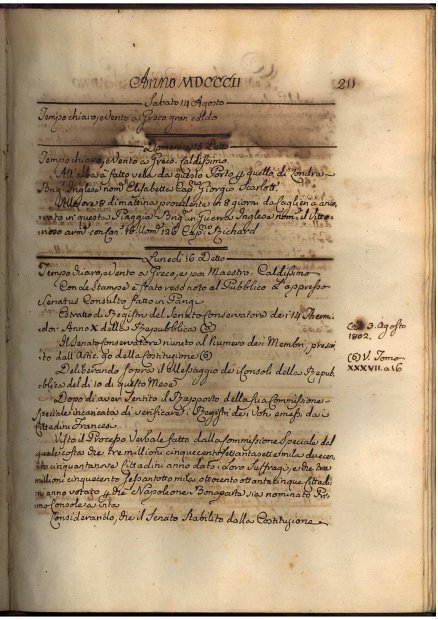 Anno MDCCCII
211
Sabato 14 Agosto
Tempo chiaro, e Vento a Greco gran caldo
Domenica 15 Detto
Tempo chiaro, e Vento a Greco. Caldissimo.
All'alba à fatto vela da questo Porto quella di Londra
Brig. Inglese nom. Elisabetta Cap. Giorgio Scarlott.
Alle ore 8 di mattina proveniente in 8 giorni da Cagliari à anco
rato in questa Piaggia Brig. in Guerra Inglese nom. il Vitto
rioso arm. con Can. 18. Uom. 120 Cap. Richard
Lunedì 16 Detto
Tempo chiaro, e Vento a Greco, e poi Maestro. Caldissimo
Con le Stampe è stato reso noto al Pubblico l'appresso
Senatus Consulto fatto in Parigi
Estratto di Registri del Senato Conservatore de i 14 Thermi
dor Anno X della Repubblica (a)
(a) 3. Agosto
1802.
Il Senato Conservatore riunito al Numero dei Membri, prescri
to dall'Artic. 90 della Costituzione (b)
(b) V. Tomo
XXXVII. a 16
Deliberando sopra il Messaggio de Consoli della Repub
blica del dì 10 di questo Mese
Dopo di aver Sentito il Rapporto della sua Commissione
Speciale incaricata di verificare i Registri dei Voti emessi dai
Cittadini Francesi
Visto il Processo Verbale fatto dalla Commissione Speciale del
quale costa che tre millioni cinquecento settantasette mila duecen
to cinquantanove Cittadini anno dato i loro Suffragi, e che tre
millioni cinquecento sessantotto mila ottocento ottantacinque Cittadi
ni anno votato che Napoleone Bonaparte sia nominato Pri
mo Console a vita
Considerando, che il Senato Stabilito dalla Costituzione